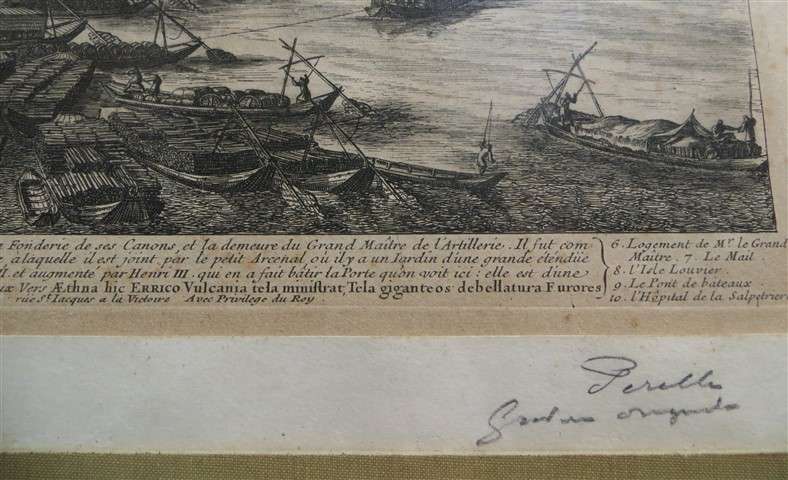 a Fonderie de ses Canons, et la demeure du Grand Maître de l'Artillerie. Il fut com
, a laquelle il est joint par le petit Arcenal, où il y a un Iardin d'une grande étendüe
II. et augmenté par Henri III. qui en a fait bâtir la Porte qu'on voit ici: elle est d'une
ux Vers Æthna hic ERRICO Vulcania tela ministrat, Tela giganteos debellatura Furores
rüe St. Iacques a la Victoire Avec Privilege du Roy.
6. Logement de Mr. le Grand
Maitre. 7. Le Mail.
8. l'Isle Louvier.
9. Le Pont de bateaux
10. l'Hôpital de la Salpetrier
Perelle